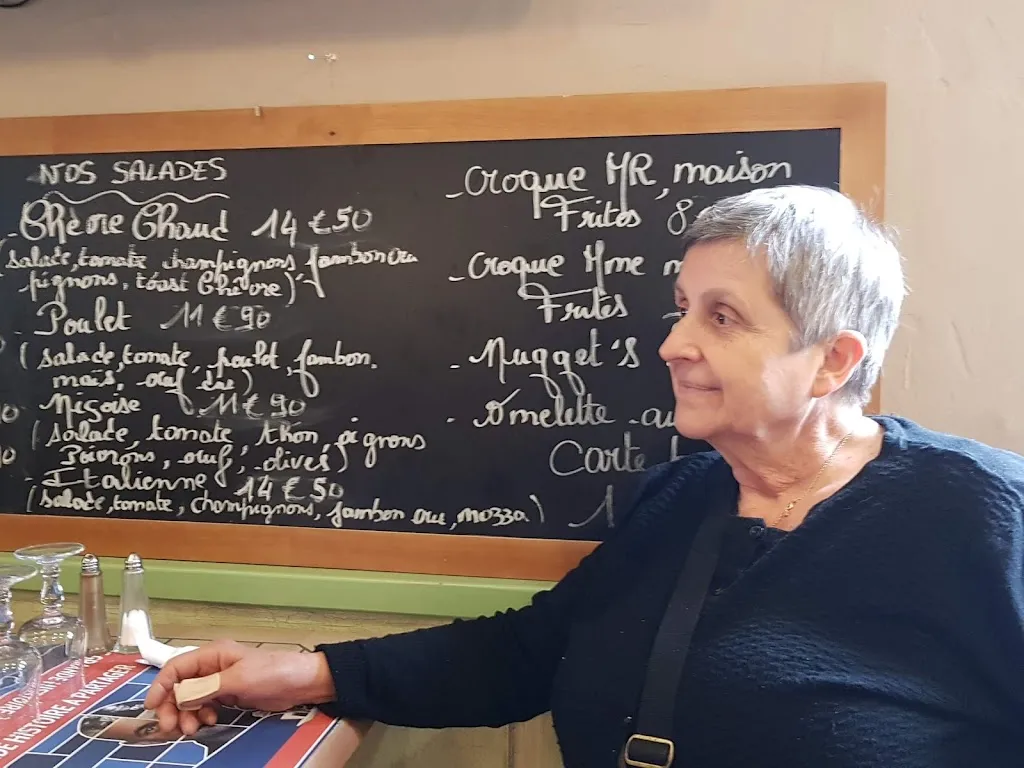 NOS SALADES
- Chèvre Chaud 14 €50
(salade, tomate champignons jambon cru
pignons, toast Chèvre)
- Poulet 11 €90
(salade, tomate, poulet, jambon.
maïs, œuf dur)
- Niçoise 11 €90
(salade, tomate, thon, pignons
Poivrons, œuf, olives)
- Italienne 14 €50
(salade, tomate, champignons, jambon cru, mozza)
- Croque MR, maison
Frites 8
- Croque Mme m
Frites
- Nugget's
- Omelette au
Carte
1
GRANDE HISTOIRE
DE HISTOIRE A PARTAGER